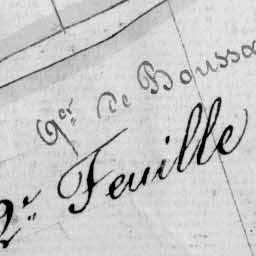 Qer de Boussa
2e Feuille